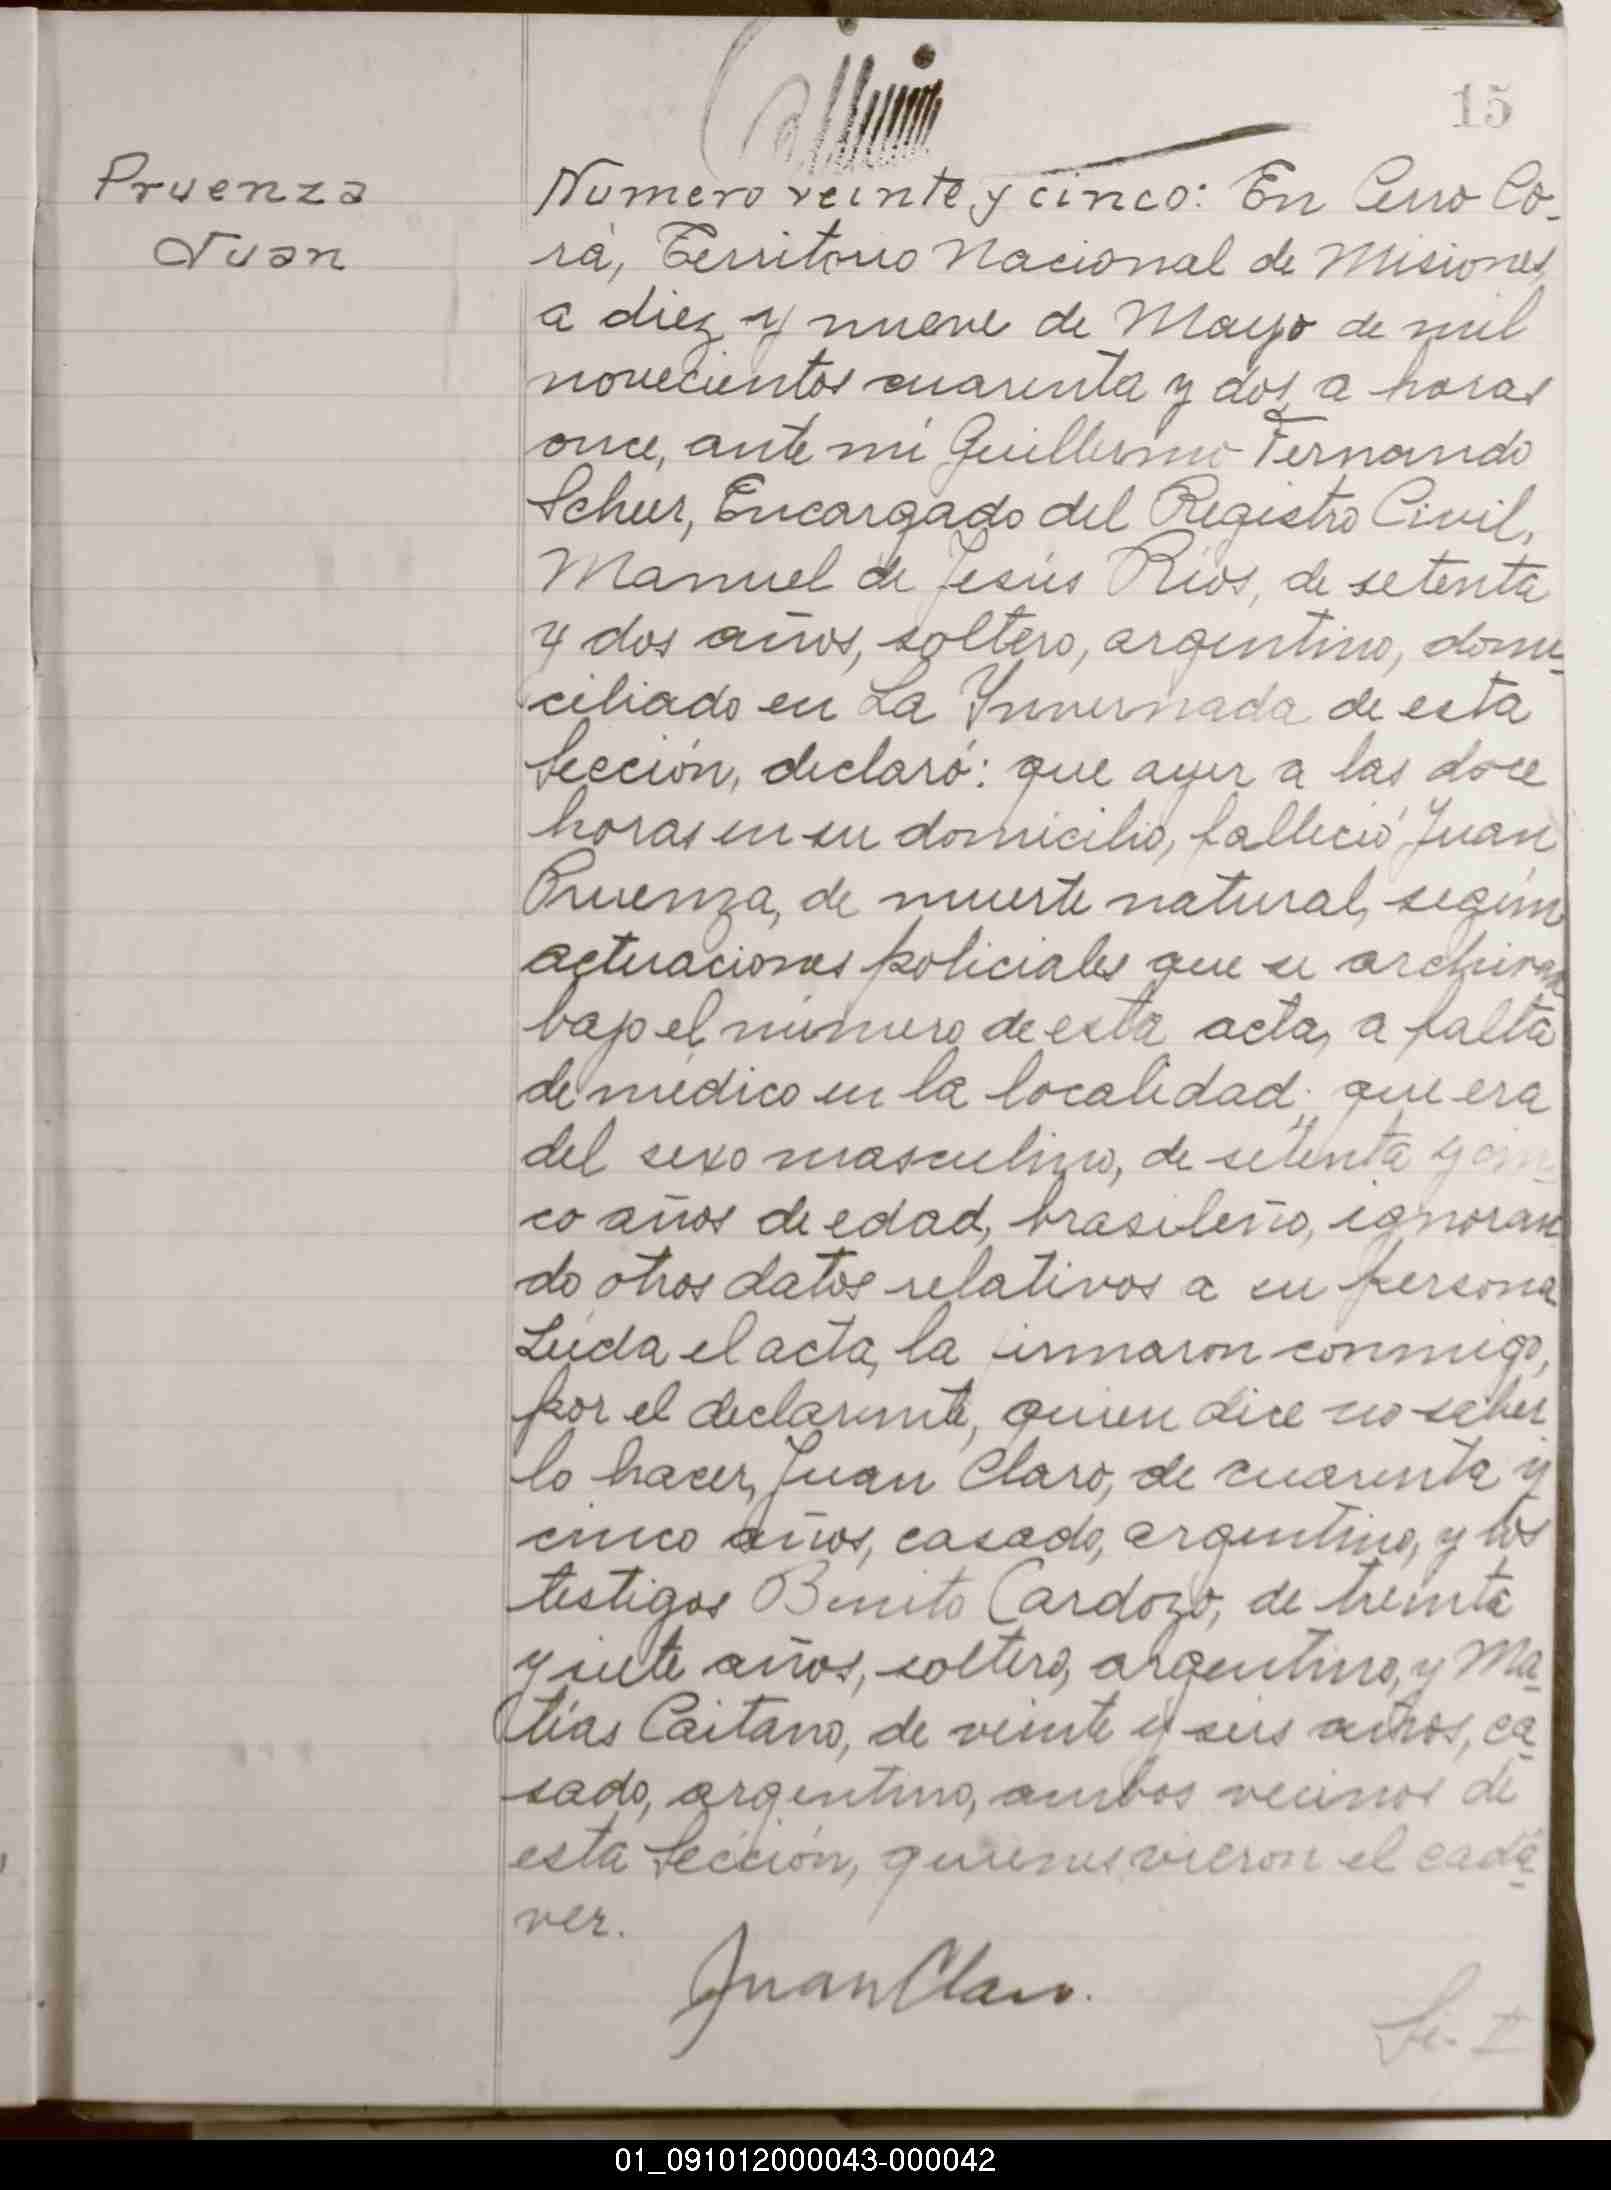 15
Pruenza
Juan
Numero veinte y cinco: En Cerro Co-
rá, Territorio Nacional de Misiones,
a diez y nueve de Mayo de mil
novecientos cuarenta y dos, a horas
once, ante mi Guillermo Fernando
Scheer, Encargado del Registro Civil,
Manuel de Jesús Ríos, de setenta
y dos años, soltero, argentino, domi-
ciliado en La Invernada de esta
Sección, declaró: que ayer a las doce
horas en su domicilio, falleció Juan
Pruenza, de muerte natural, según
actuaciones policiales que se archivan
bajo el número de esta acta, a falta
de médico en la localidad; que era
del sexo masculino, de setenta y cin-
co años de edad, brasileño, ignoran
do otros datos relativos a su persona
Leida el acta, la firmaron conmigo,
por el declarante, quien dice no saber
lo hacer, Juan Claro, de cuarenta y
cinco años, casado, argentino, y los
testigos Benito Cardozo, de treinta
y siete años, soltero, argentino, y Ma-
tías Caitano, de veinte y seis años, ca-
sado, argentino, ambos vecinos de
esta Sección, quienes vieron el cadá-
ver.
Juan Claro.
01_091012000043-000042